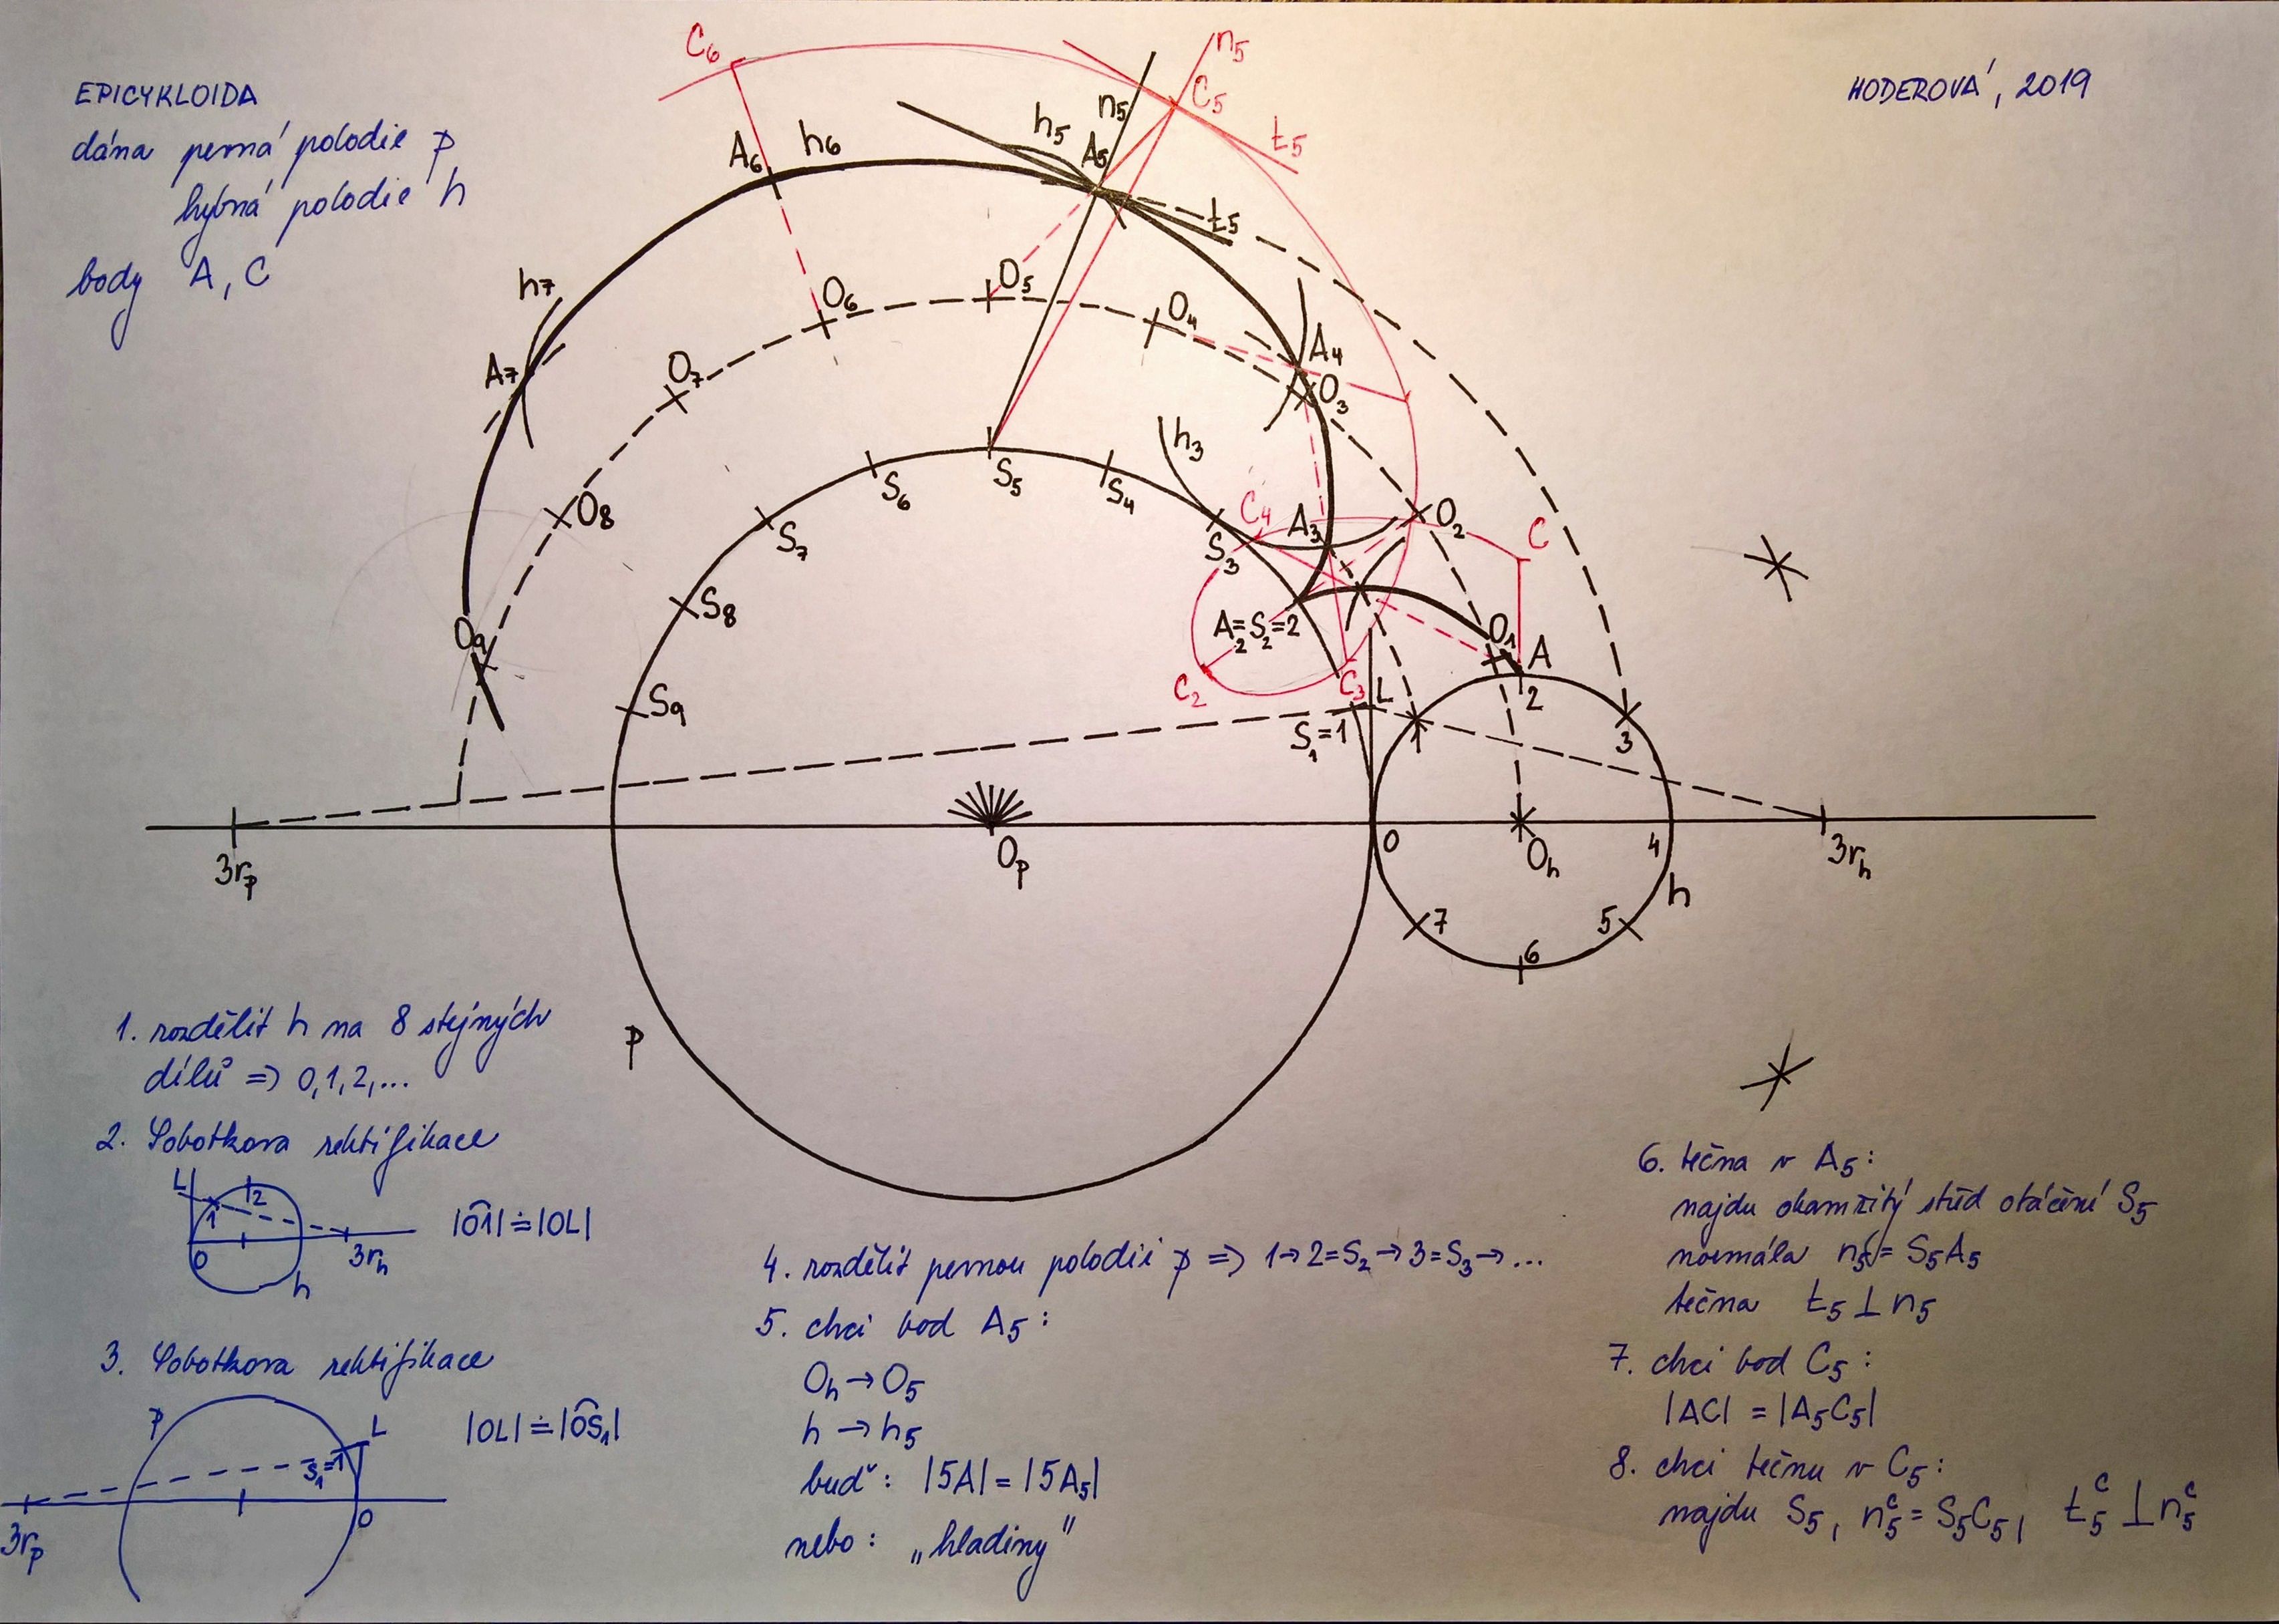 EPICYKLOIDA
dána pevná polodie p
hybná polodie h
body A, C
HODEROVÁ, 2019
C₆
n₅
C₅
t₅
n₅
h₅
A₅
t₅
A₆ h₆
h₇
A₇
O₆
O₅
O₄
A₄
O₃
O₇
O₈
O₉
h₃
S₃
S₄
S₅
S₆
S₇
S₈
S₉
C₄
A₃
O₂
C
A₂=S₂=2
O₁
A
C₂
C₃
L
S₁=1
1
2
3
3rₚ
Oₚ
0
Oₕ
4
3rₕ
h
7
6
5
p
1. rozdělit h na 8 stejných
dílů => 0,1,2,...
2. Sobotkova rektifikace
L
1
2
0
3rₕ
h
|0͡1| ≐ |0L|
3. Sobotkova rektifikace
p
L
S₁=1
0
3rₚ
|0L| ≐ |0͡S₁|
4. rozdělit pevnou polodii p => 1→2=S₂→3=S₃→...
5. chci bod A₅:
Oₕ→O₅
h→h₅
buď: |5A| = |5A₅|
nebo: „hladiny"
6. tečna v A₅:
najdu okamžitý střed otáčení S₅
normála n₅ = S₅A₅
tečna t₅ ⊥ n₅
7. chci bod C₅:
|AC| = |A₅C₅|
8. chci tečnu v C₅:
najdu S₅, n₅ᶜ = S₅C₅, t₅ᶜ ⊥ n₅ᶜ